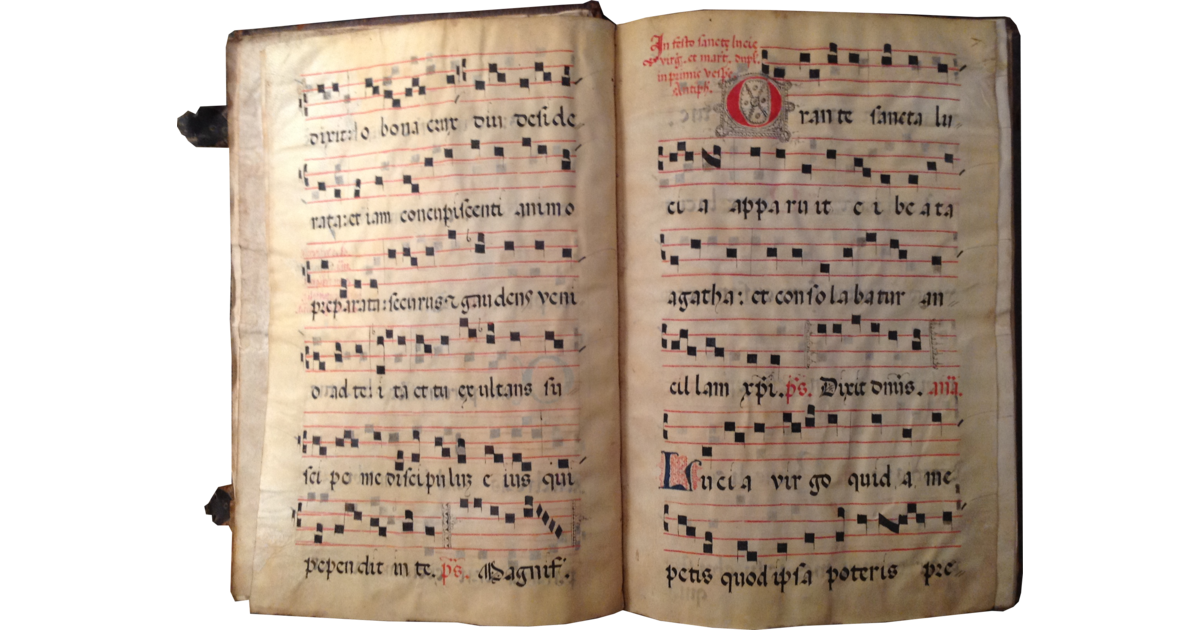 dixit: o bona crux diu deside
rata: et iam concupiscenti animo
preparata: securus ⁊ gaudens veni
o ad te: i ta et tu exultans su
sci pe me discipulum e ius qui
pependit in te. ps. Magnif.
In festo sancte lucie
virg. et mart. dupl.
in primis vesp.
antiph.
Orante sancta lu
ci a apparuit e i beata
agatha: et consolabatur an
cillam xpi. ps. Dixit dnus. ana.
Lucia virgo quid a me
petis quod ipsa poteris pre